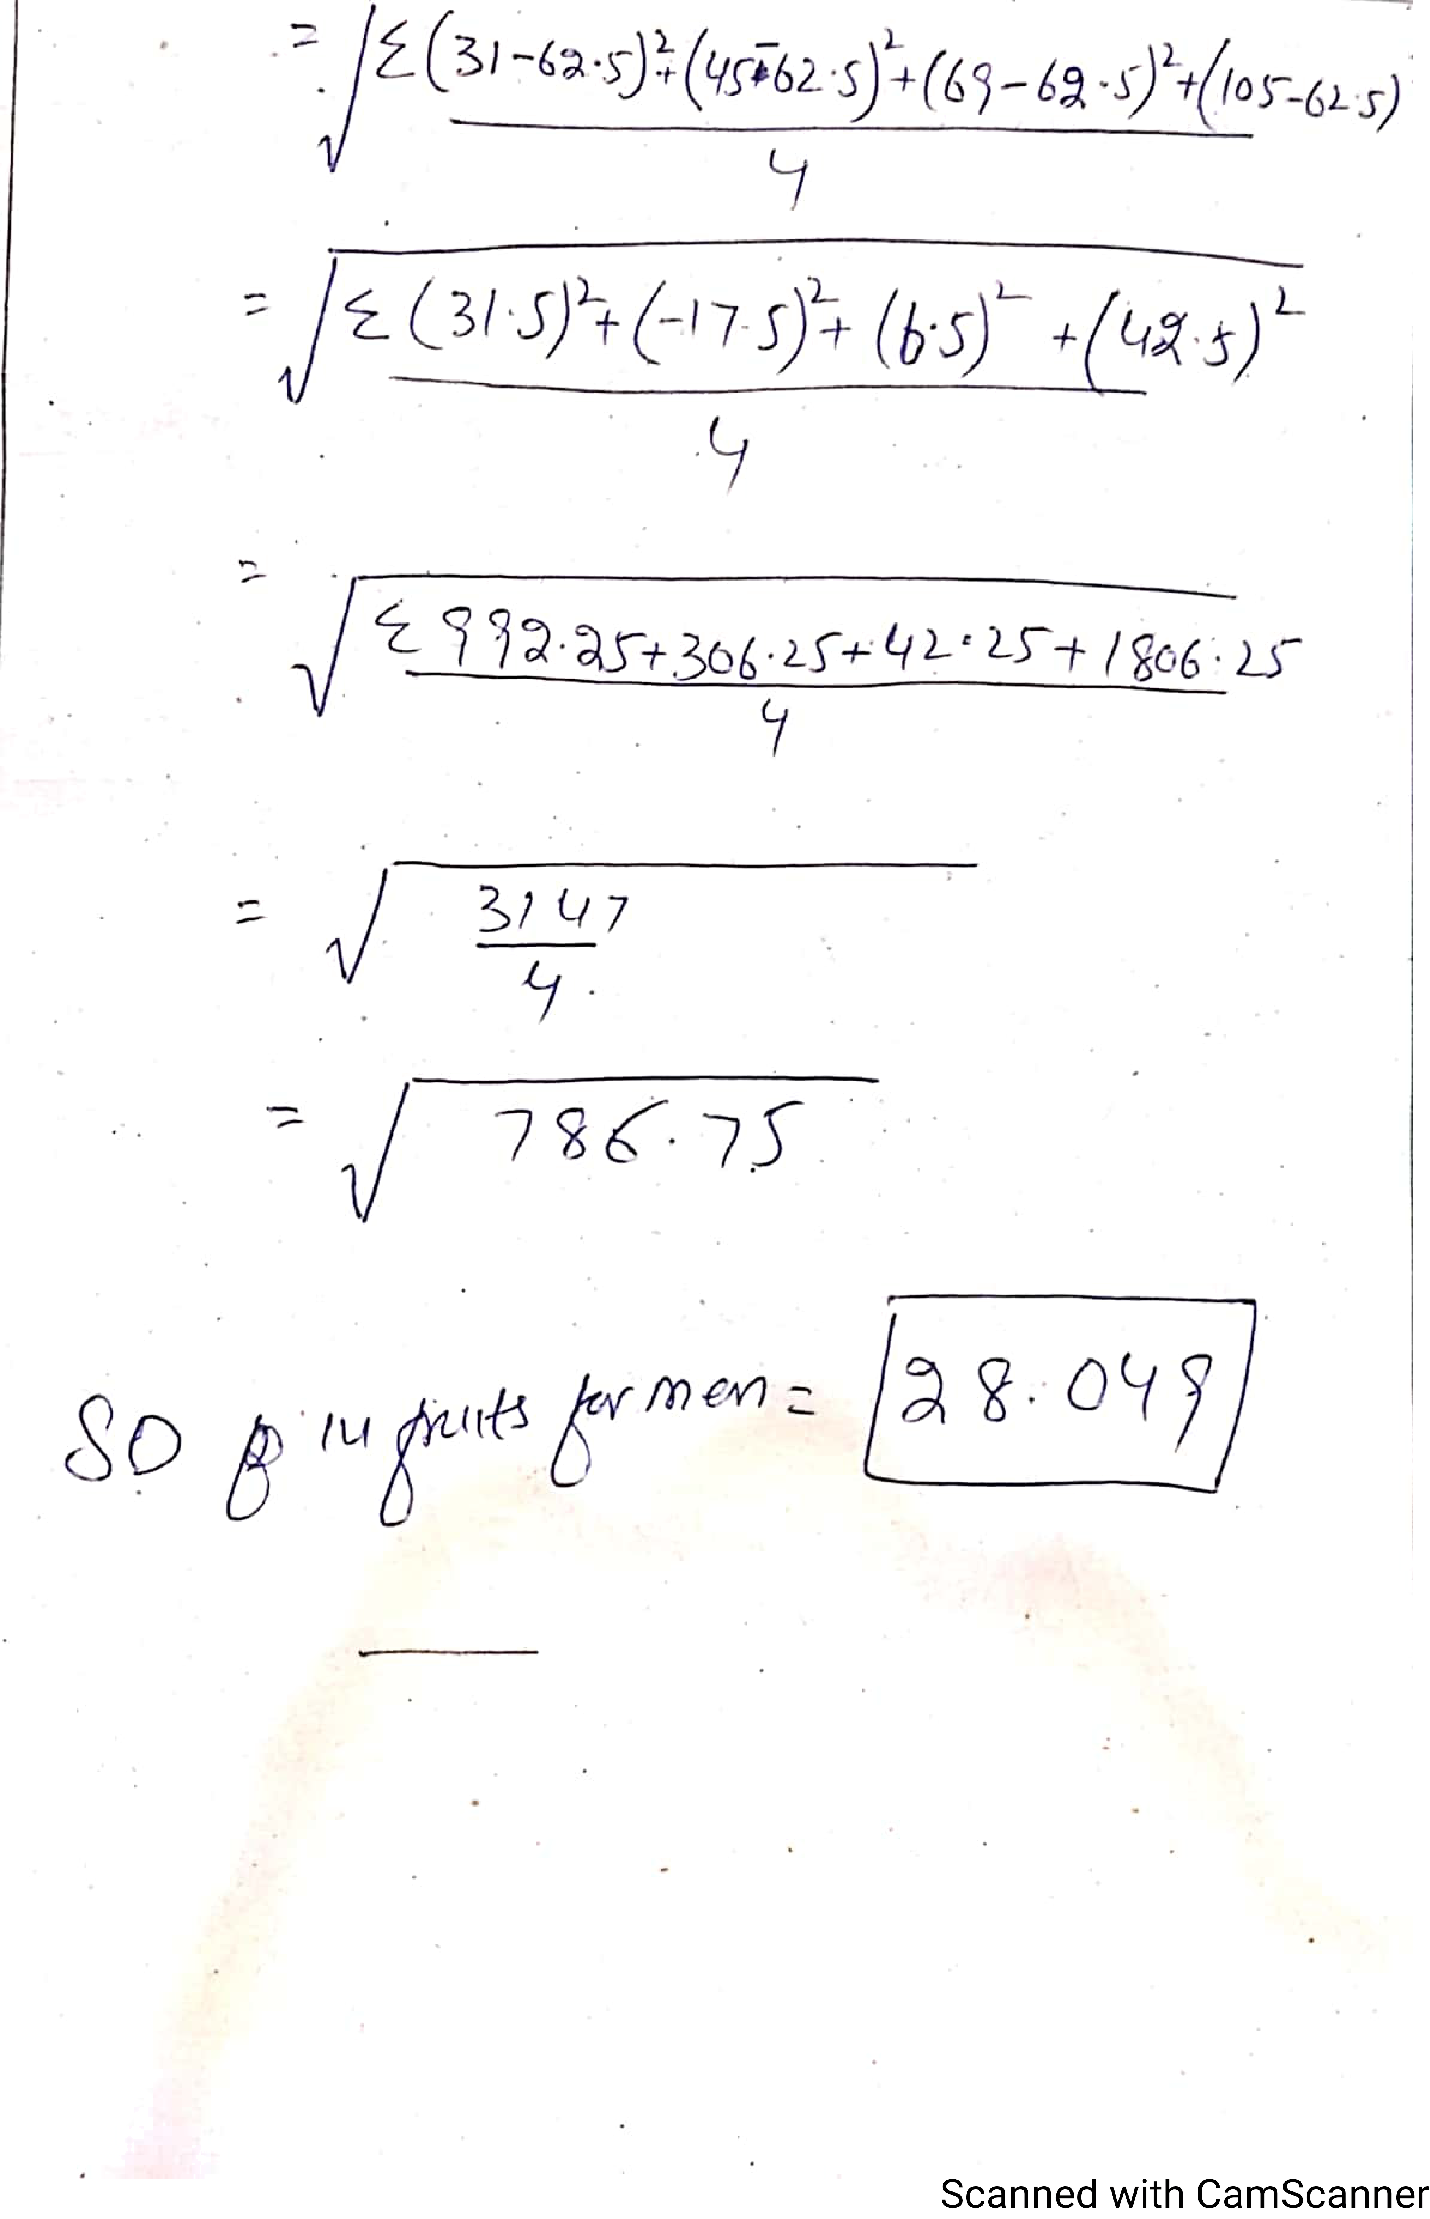 = √Σ(31-62.5)²+(45-62.5)²+(69-62.5)²+(105-62.5)
4
= √Σ(31.5)²+(-17.5)²+(6.5)²+(42.5)²
4
= √Σ992.25+306.25+42.25+1806.25
4
= √3147
4
= √786.75
SD in fruits for men = 28.049
Scanned with CamScanner